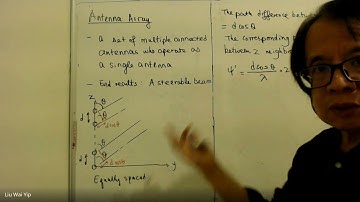 Antenna Array
- A set of multiple connected
antennas who operate as
a single antenna
- End results : A steerable beam
z
θ
d
θ
d cos θ
θ
d
θ
d cos θ
y
Equally spaced
The path difference betw
= d cos θ
The corresponding
between 2 neighbo
Ψ' = d cos θ / λ · 2
Liu Wai Yip